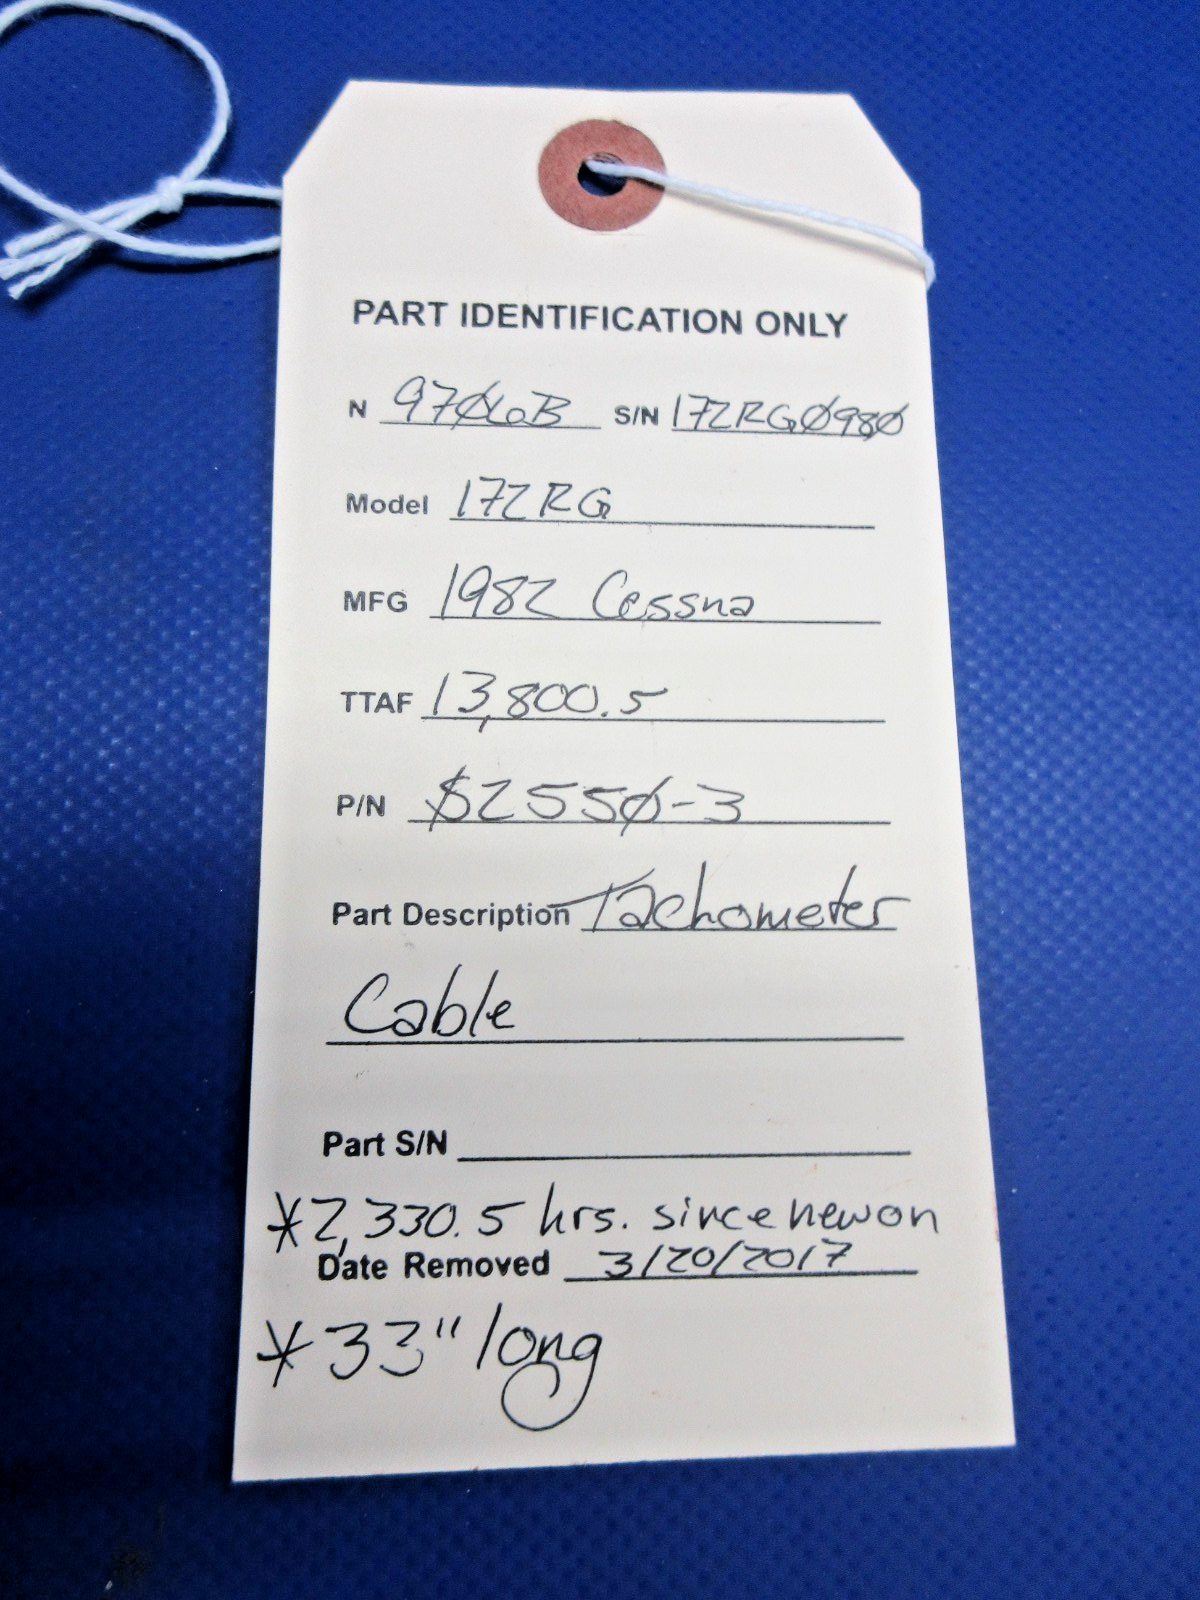 PART IDENTIFICATION ONLY
N 9706B S/N 172RG0980
Model 172RG
MFG 1982 Cessna
TTAF 13,800.5
P/N S2550-3
Part Description Tachometer
Cable
Part S/N
*2,330.5 hrs. since new on
Date Removed 3/20/2017
*33" long